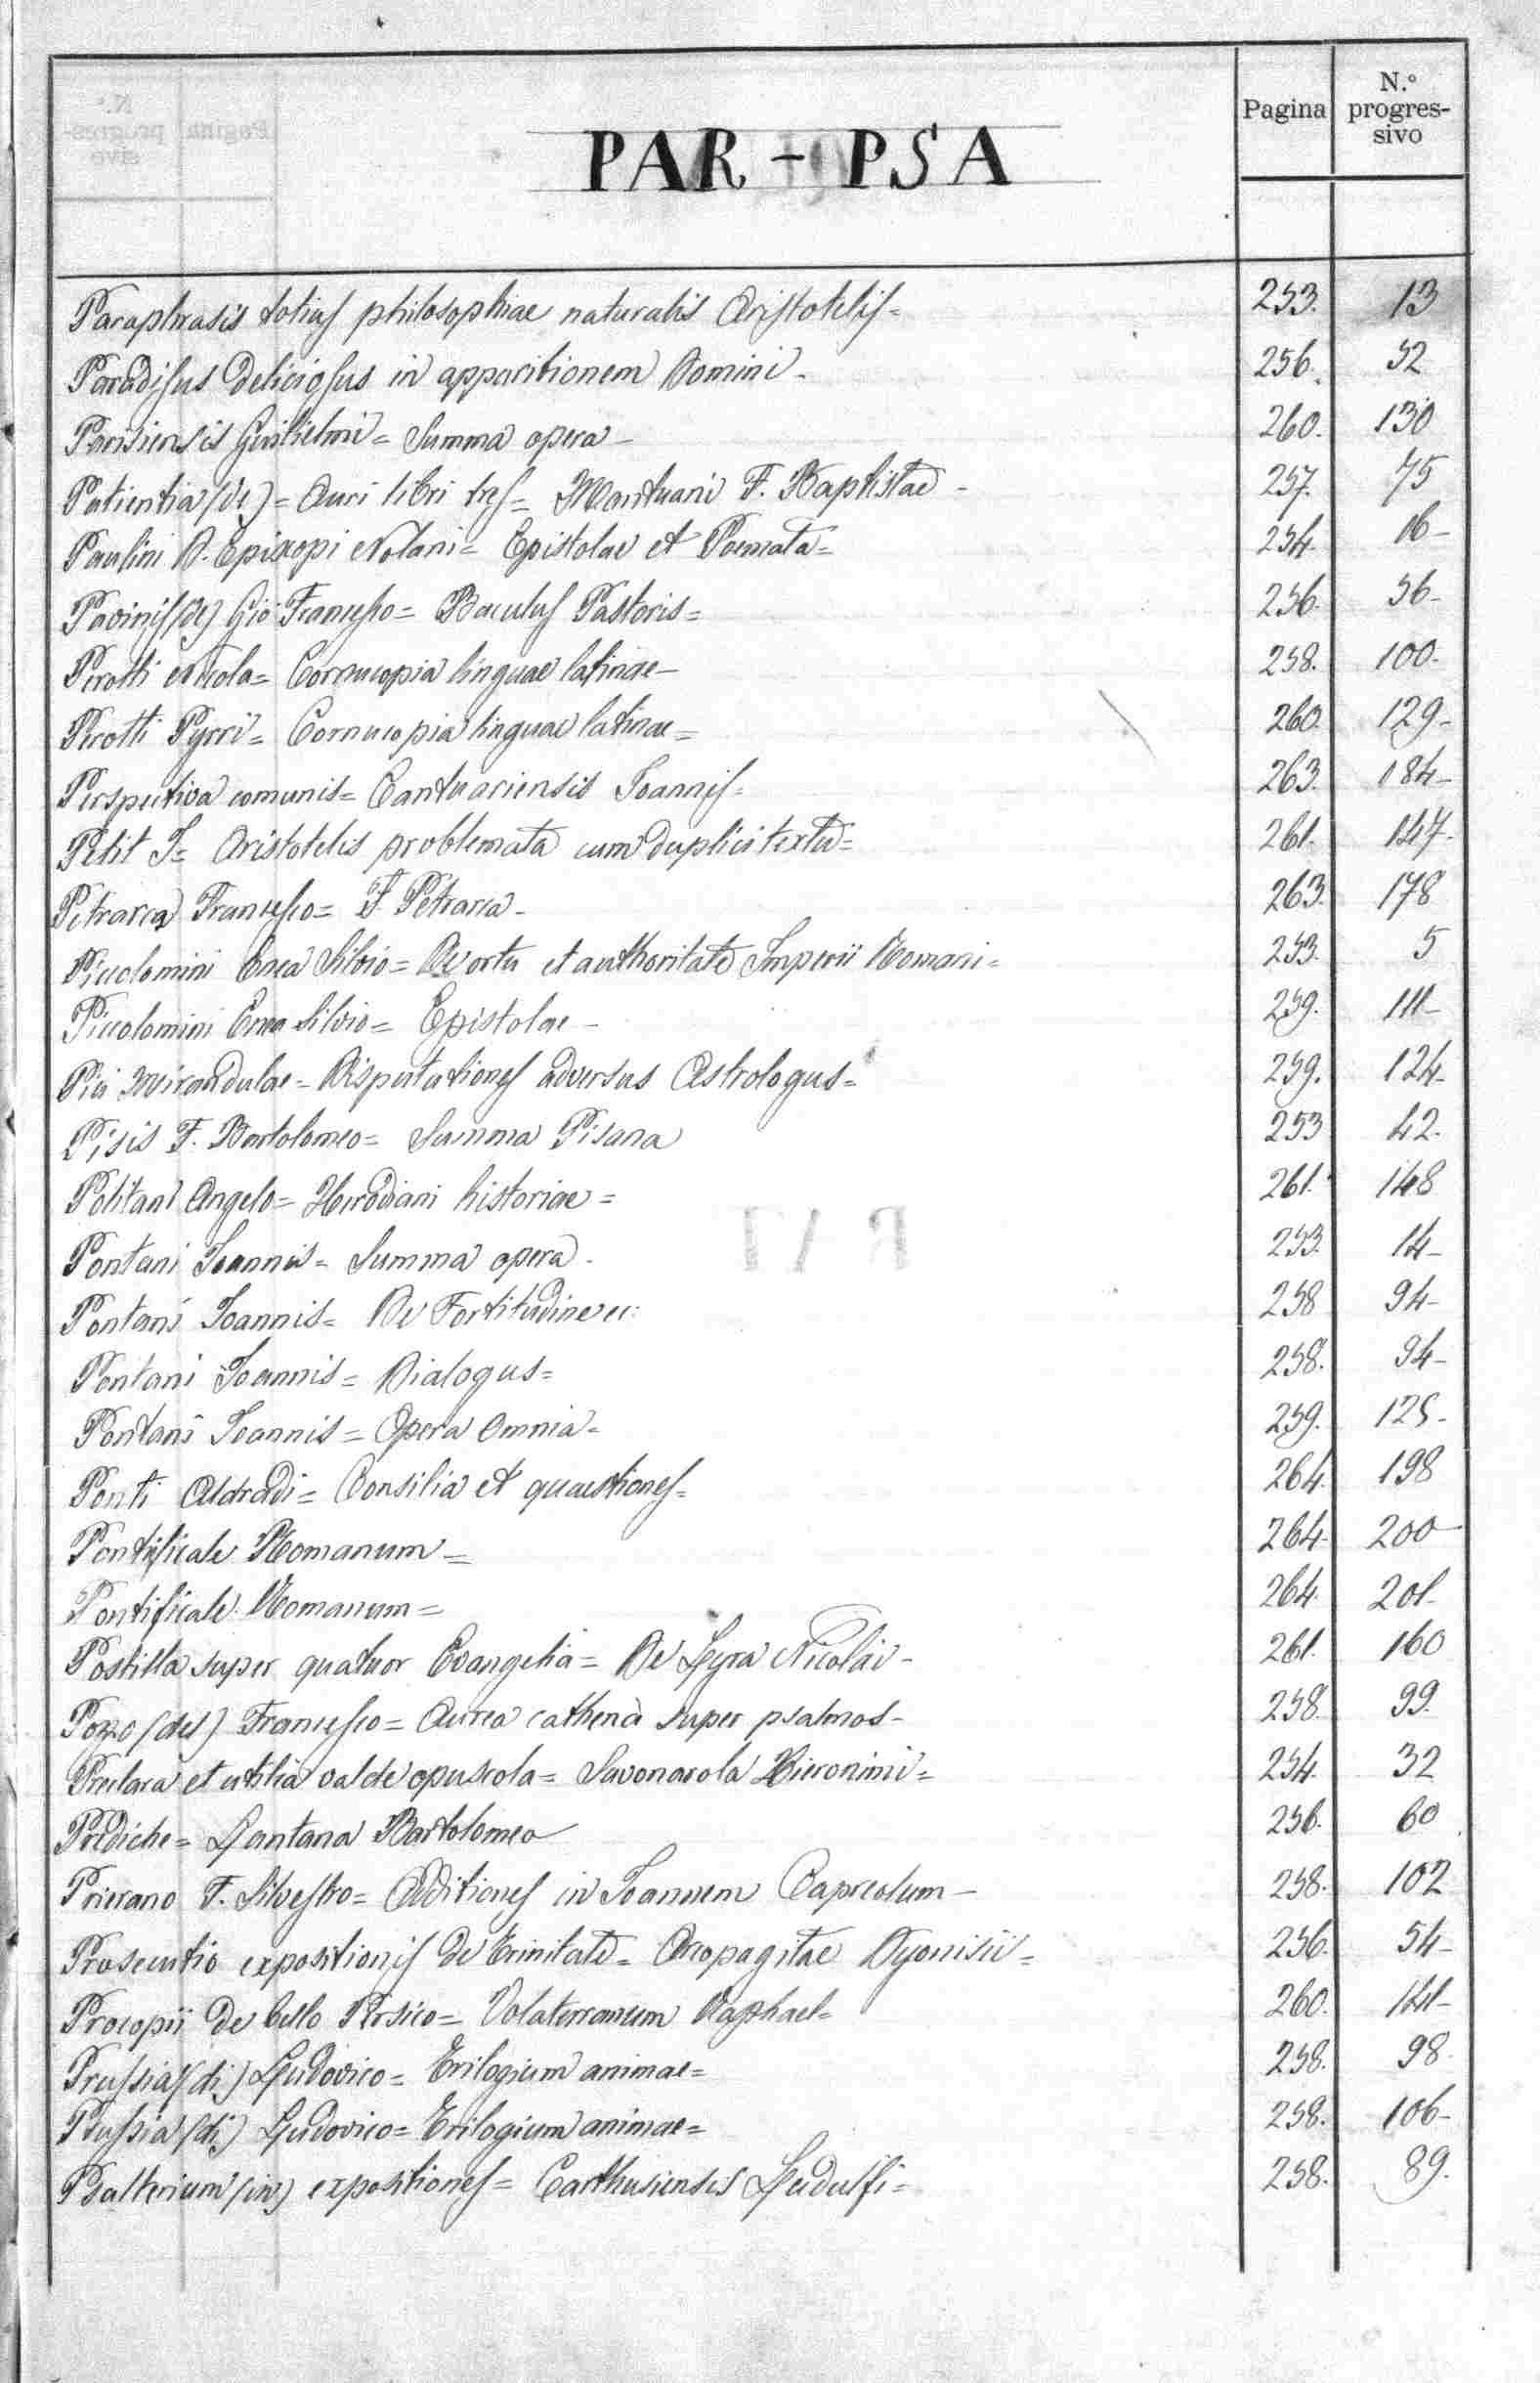 Pagina
N.º progres-
sivo
PAR - PSA
Paraphrasis totius philosophiae naturalis Aristotelis= 253. 13
Paradisus deliciosus in apparitionem Domini- 256. 52
Parisiensis Guilielmi= Summa opera- 260. 130
Patientia (de)= Auri libri tres= Mantuani F. Baptistae- 257. 75
Paulini D. Episcopi Nolani= Epistolae et Poemata= 254. 16-
Pavinis (de) Gio: Francesco= Baculus Pastoris= 256. 56-
Perotti Nicola= Cornucopia linguae latinae- 258. 100-
Perotti Pyrri= Cornucopia linguae latinae= 260. 129-
Perspectiva comunis= Cantuariensis Joannis= 263. 184-
Petit J= Aristotelis problemata cum duplici textu= 261. 147-
Petrarca Francesco= F. Petrarca- 263. 178
Piccolomini Enea Silvio= De ortu et authoritate Imperii Romani= 253. 5
Piccolomini Enea Silvio= Epistolae- 259. 111-
Pici Mirandulae- Disputationes adversus Astrologus= 259. 124-
Pisis F. Bartolomeo= Summa Pisana 253 42-
Politani Angelo= Herodiani historiae= 261. 148
Pontani Joannis- Summa opera- 253. 14-
Pontani Joannis- De Fortitudine ec: 258 94-
Pontani Joannis= Dialogus= 258. 94-
Pontani Joannis= Opera Omnia- 259. 125-
Ponti Aldradi= Consilia et quaestiones= 264. 198
Pontificale Romanum= 264- 200-
Pontificale Romanum= 264. 201-
Postilla super quatuor Evangelia= De Lyra Nicolai- 261. 160
Pozzo (del) Francesco= Aurea cathena super psalmos- 258. 99.
Preclara et utilia valde opuscola= Savonarola Hieronimi= 254. 32
Prediche= Lantana Bartolomeo 256. 60
Prierano F. Silvestro= Additiones in Joannem Capreolum- 258. 102
Prosecutio expositionis de Trinitate= Areopagitae Dyonisii= 256. 54-
Procopii de bello Persico= Volaterranum Raphael= 260. 141-
Prussia (di) Ludovico= Trilogium animae= 258. 98-
Prussia (di) Ludovico= Trilogium animae= 258. 106-
Psalterium (in) expositiones= Carthusiensis Ludulfi= 258. 89.